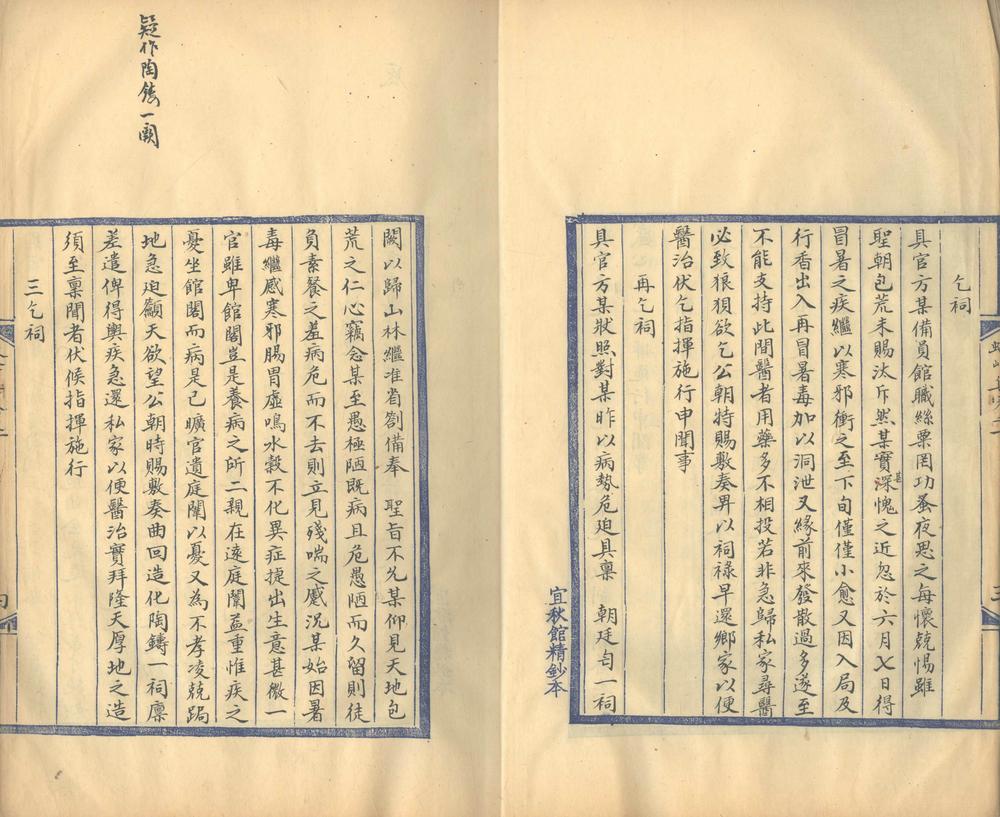 乞祠
具官方某備員館職絲粟罔功蚤夜思之每懷兢惕雖
聖朝包荒未賜汰斥然某實深甚愧之近忽於六月七日得
冒暑之疾繼以寒邪衝之至下旬僅僅小愈又因入局及
行香出入再冒暑毒加以洞泄又緣前來發散過多遂至
不能支持此間醫者用藥多不相投若非急歸私家尋醫
必致狼狽欲乞公朝特賜敷奏畀以祠祿早還鄉家以便
醫治伏乞指揮施行申聞事
再乞祠
具官方某狀照對某昨以病勢危迫具稟 朝廷匄一祠
宜秋館精鈔本
闕以歸山林繼准省劄備奉 聖旨不允某仰見天地包
荒之仁心竊念某至愚極陋既病且危愚陋而久留則徒
負素餐之羞病危而不去則立見殘喘之慼況某始因暑
毒繼感寒邪腸胃虛鳴水穀不化異症捷出生意甚微一
官雖卑館閣豈是養病之所二親在遠庭闈益重惟疾之
憂坐館閣而病是已曠官遺庭闈以憂又為不孝凌兢跼
地急迫籲天欲望公朝時賜敷奏曲回造化陶鑄一祠廪
差遣俾得輿疾急還私家以便醫治實拜隆天厚地之造
須至稟聞者伏候指揮施行
三乞祠
疑作陶鑄一闕